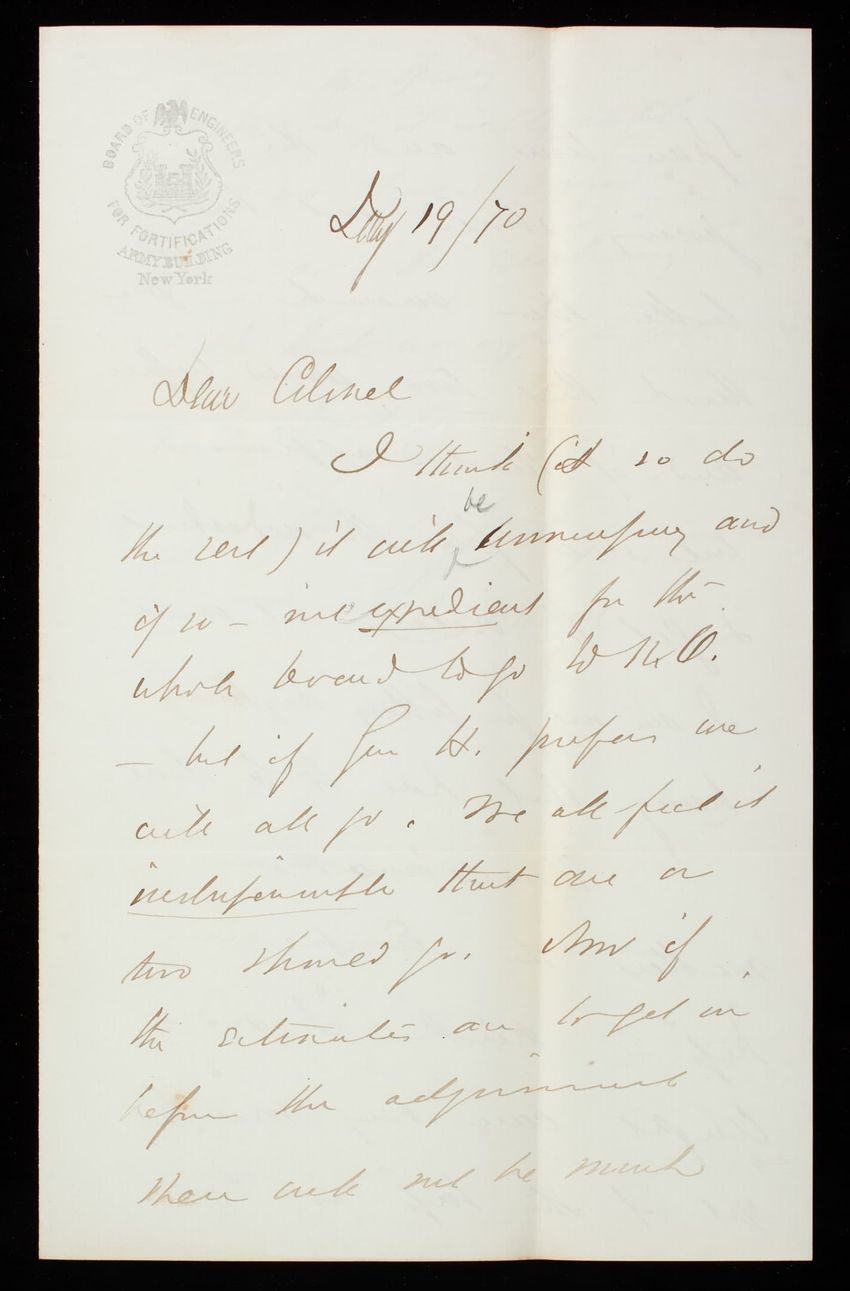 BOARD OF ENGINEERS
FOR FORTIFICATIONS
ARMY BUILDING
New York
19/70
Dear Colonel
I think (& so do
the rest) it will be unnecessary and
if so - inexpedient for the
whole board to go to N.O.
- but if Gen H. prefers we
will all go. We all feel it
indispensable that one or
two should go. And if
the estimates are to get in
before the adjournment
there will not be much